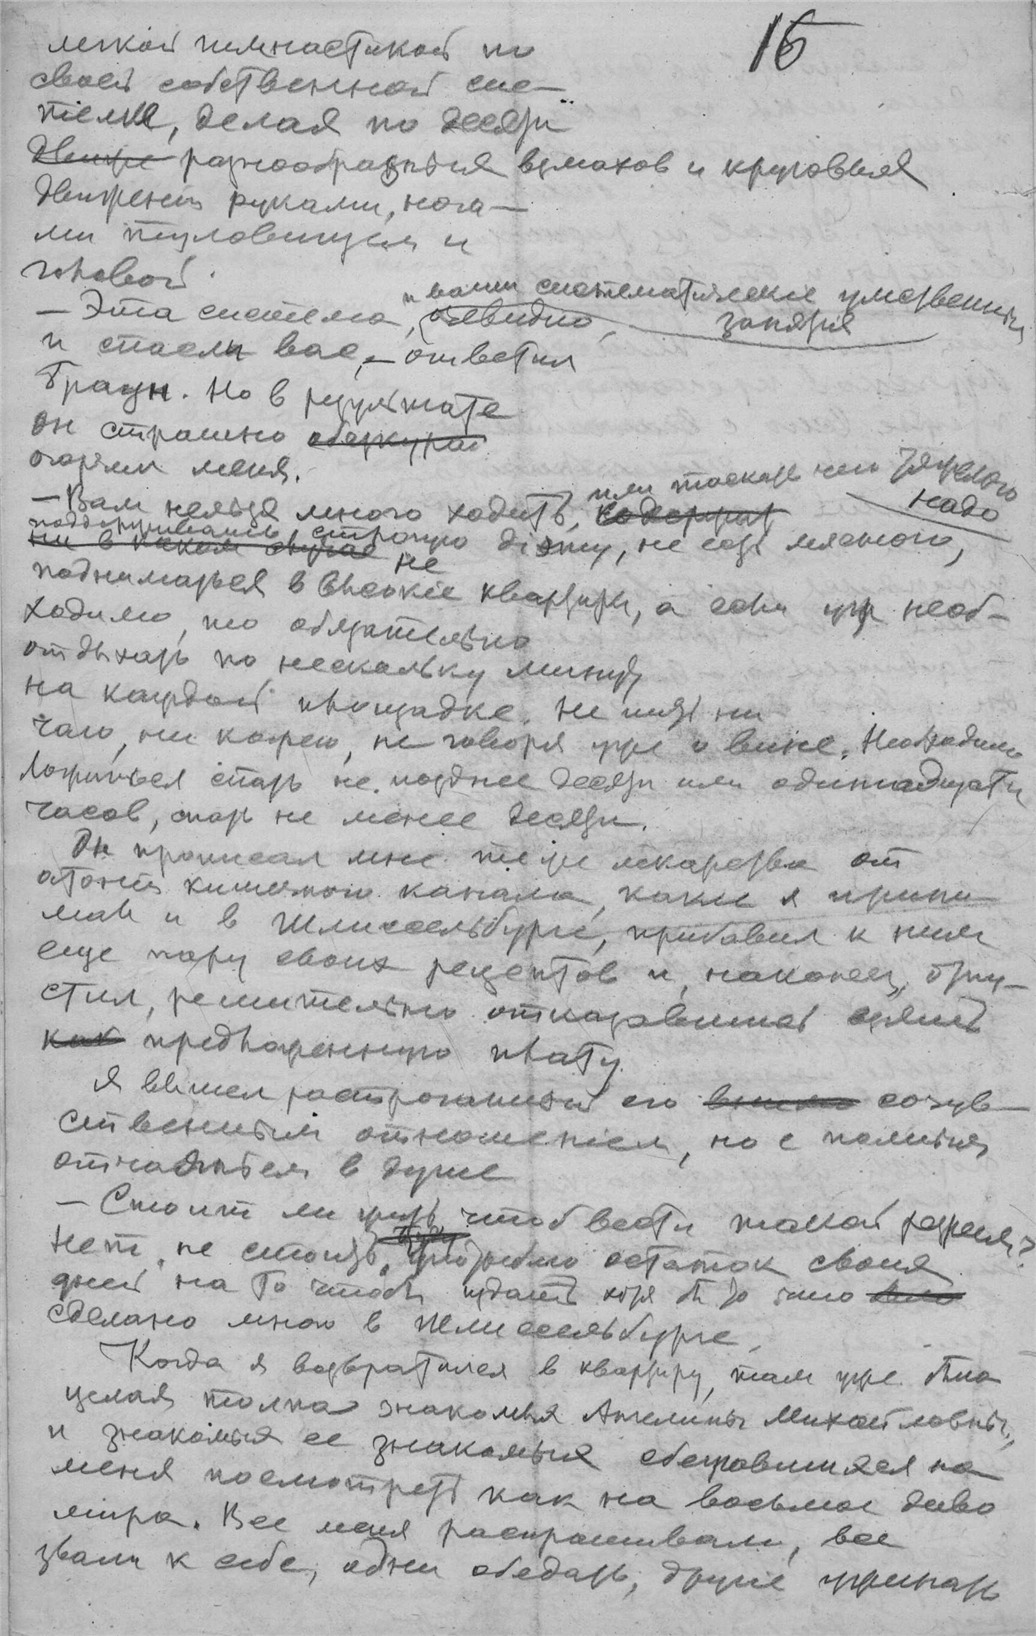 15
легкой гимнастикой по
своей собственной сис-
теме, делая по десяти
движе разнообразных взмахов и круговых
движений руками, нога-
ми туловищем и
головой.
и ваши систематические умственныя
— Эта система, очевидно, занятия
и спасли вас, — ответил
Браун. Но в результате
он страшно
огорчил меня.
или таскать чего тяжелого
— Вам нельзя много ходить, надо
поддерживать строгую діэту, не есть мясного,
ни в каком случае не
подниматься в высокіе квартиры, а если уж необ-
ходимо, то обязательно
отдыхать по нескольку минут
на каждой площадке. Не пить ни
чаю, ни кофею, не говоря уже о вине. Необходимо
ложиться спать не позднее десяти или одиннадцати
часов, спать не менее десяти.
Он прописал мне те же лекарства от
атонии кишечного канала, какие я прини-
мал и в Шлиссельбурге, прибавил к ним
еще пару своих рецептов и, наконец, отпу-
стил, решительно отказавшись взять
как предложенную плату.
Я вышел растроганный его сочув-
ственным отношением, но с полным
отчаяньем в душе
— Стоит ли жить, чтоб вести такой режим?
Нет, не стоит. Употреблю остаток своих
дней на то чтобы издать хотя бы то что
сделано мною в Шлиссельбурге.
Когда я возвратился в квартиру, там уже была
целая толпа знакомых Ангелины Михайловны,
и знакомых ее знакомых сбежавшихся на
меня посмотреть как на восьмое диво
мира. Все меня распрашивали, все
звали к себе, одни обедать, другие ужинать